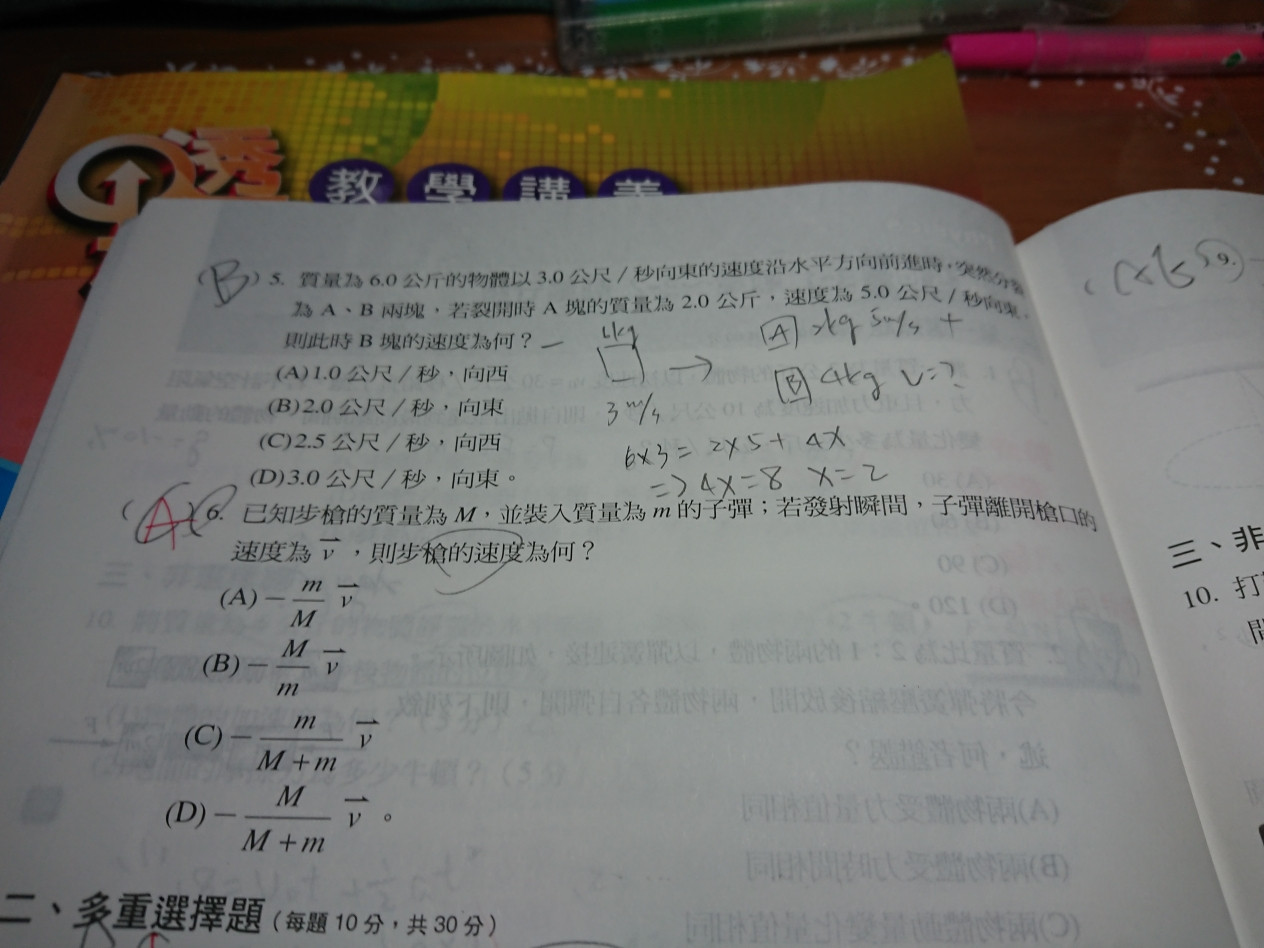 透
教學講義
(B) 5. 質量為 6.0 公斤的物體以 3.0 公尺／秒向東的速度沿水平方向前進時，突然分裂
為 A、B 兩塊，若裂開時 A 塊的質量為 2.0 公斤，速度為 5.0 公尺／秒向東，
則此時 B 塊的速度為何？
(A)1.0 公尺／秒，向西
(B)2.0 公尺／秒，向東
(C)2.5 公尺／秒，向西
(D)3.0 公尺／秒，向東。
6kg
3 m/s
A 2kg 5m/s +
B 4kg V=?
6x3= 2x5+ 4x
=> 4x=8 x=2
(A) 6. 已知步槍的質量為 M，並裝入質量為 m 的子彈；若發射瞬間，子彈離開槍口的
速度為 v⃗，則步槍的速度為何？
(A) − m/M v⃗
(B) − M/m v⃗
(C) − m/(M+m) v⃗
(D) − M/(M+m) v⃗。
二、多重選擇題（每題 10 分，共 30 分）
9.
三、非
10. 打